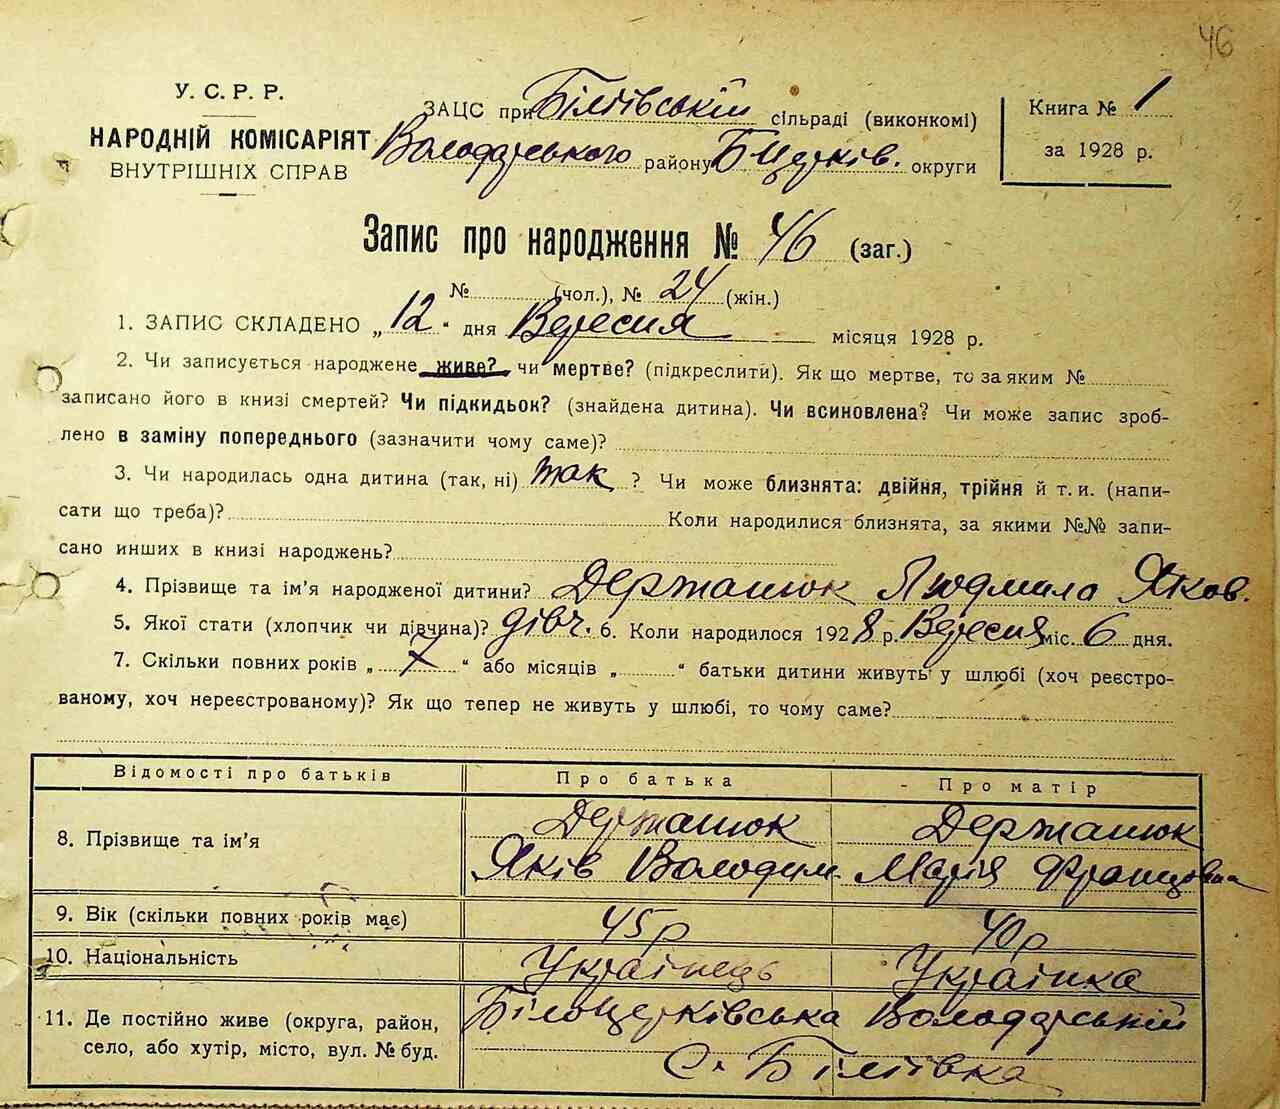 46
У. С. Р. Р.
НАРОДНІЙ КОМІСАРІЯТ
ВНУТРІШНІХ СПРАВ
ЗАЦС при Біліївській сільраді (виконкомі)
Володарського району Бцерків. округи
Книга № 1
за 1928 р.
Запис про народження № 46 (заг.)
№ (чол.), № 24 (жін.)
1. ЗАПИС СКЛАДЕНО „ 12 “ дня Вересня місяця 1928 р.
2. Чи записується народжене живе? чи мертве? (підкреслити). Як що мертве, то за яким №
записано його в книзі смертей? Чи підкидьок? (знайдена дитина). Чи всиновлена? Чи може запис зроб-
лено в заміну попереднього (зазначити чому саме)?
3. Чи народилась одна дитина (так, ні) так ? Чи може близнята: двійня, трійня й т. и. (напи-
сати що треба)? Коли народилися близнята, за якими №№ запи-
сано инших в книзі народжень?
4. Прізвище та ім’я народженої дитини? Держанюк Людмила Яков.
5. Якої стати (хлопчик чи дівчина)? дівч. 6. Коли народилося 1928 р. Вересня міс. 6 дня.
7. Скільки повних років „ 7 “ або місяців „ “ батьки дитини живуть у шлюбі (хоч реєстро-
ваному, хоч нереєстрованому)? Як що тепер не живуть у шлюбі, то чому саме?
Відомості про батьків Про батька Про матір
8. Прізвище та ім’я Держанюк Яків Володим. Держанюк Марія Францовна
9. Вік (скільки повних років має) 45 р 40 р
10. Національність Українець Українка
11. Де постійно живе (округа, район, Білоцерківська Володарський
село, або хутір, місто, вул. № буд. С. Біліївка